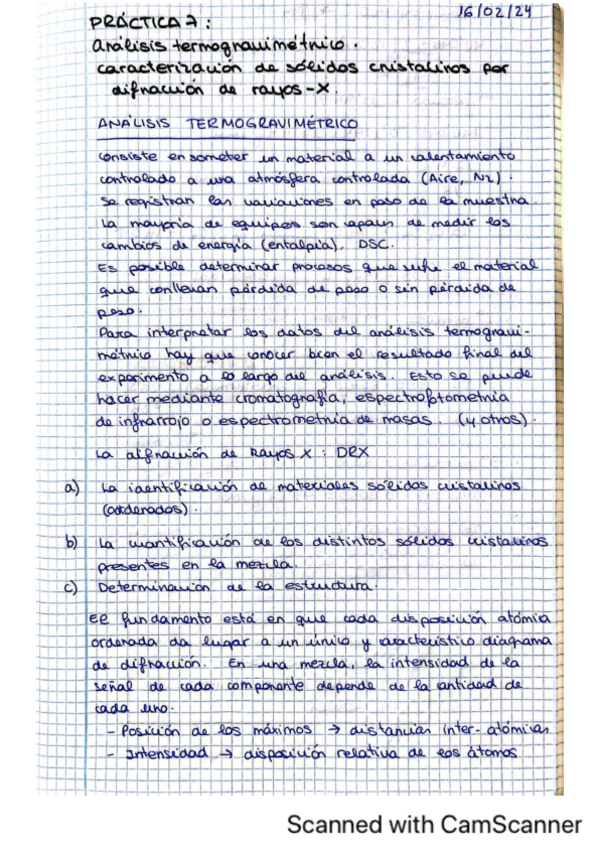 16/02/24
PRÁCTICA 7:
análisis termogravimétrico.
caracterización de sólidos cristalinos por
difracción de rayos-X.
ANÁLISIS TERMOGRAVIMÉTRICO
Consiste en someter un material a un calentamiento
controlado a una atmósfera controlada (Aire, N2).
Se registran las variaciones en peso de la muestra.
La mayoría de equipos son capaces de medir los
cambios de energía (entalpía). DSC.
Es posible determinar procesos que sufre el material
que conllevan pérdida de peso o sin pérdida de
peso.
Para interpretar los datos del análisis termogravi-
métrico hay que conocer bien el resultado final del
experimento a lo largo del análisis. Esto se puede
hacer mediante cromatografía, espectrofotometría
de infrarrojo o espectrometría de masas. (y otros).
La difracción de Rayos X : DRX
a) La identificación de materiales sólidos cristalinos
(ordenados).
b) La cuantificación de los distintos sólidos cristalinos
presentes en la mezcla.
c) Determinación de la estructura.
El fundamento está en que cada disposición atómica
ordenada da lugar a un único y característico diagrama
de difracción. En una mezcla, la intensidad de la
señal de cada componente depende de la cantidad de
cada uno.
- Posición de los máximos → distancias inter-atómicas
- Intensidad → disposición relativa de los átomos
Scanned with CamScanner